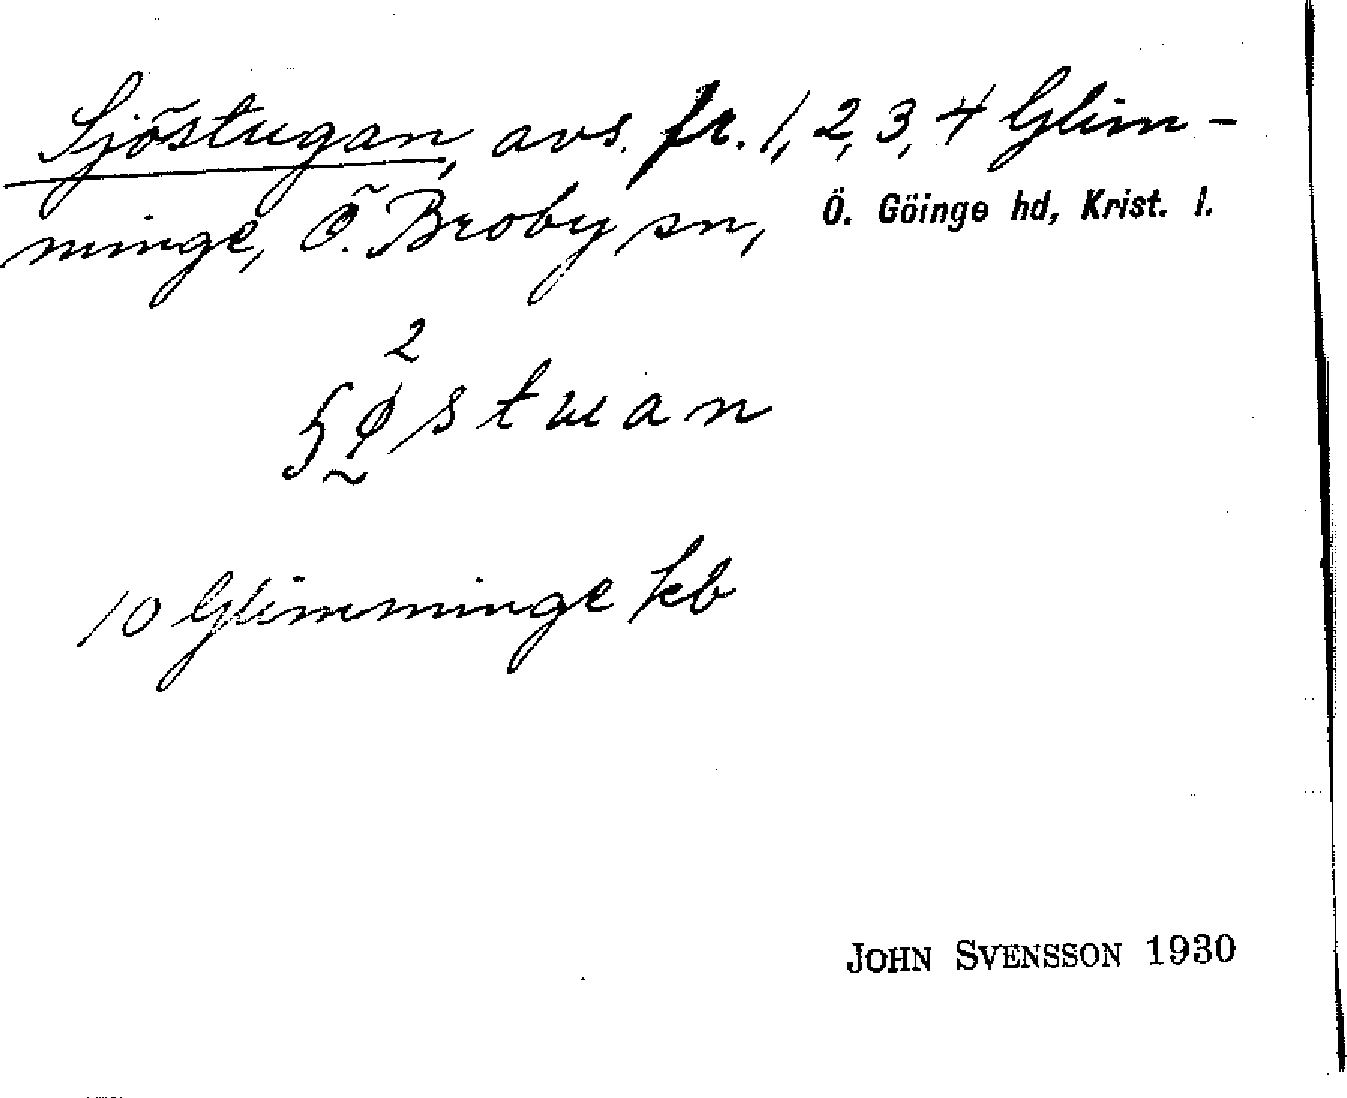 Sjöstugan, avs. fr. 1, 2, 3, 4 Glim-
minge, Ö. Broby sn, Ö. Göinge hd, Krist. l.
2
10 Glimminge kb
JOHN SVENSSON 1930